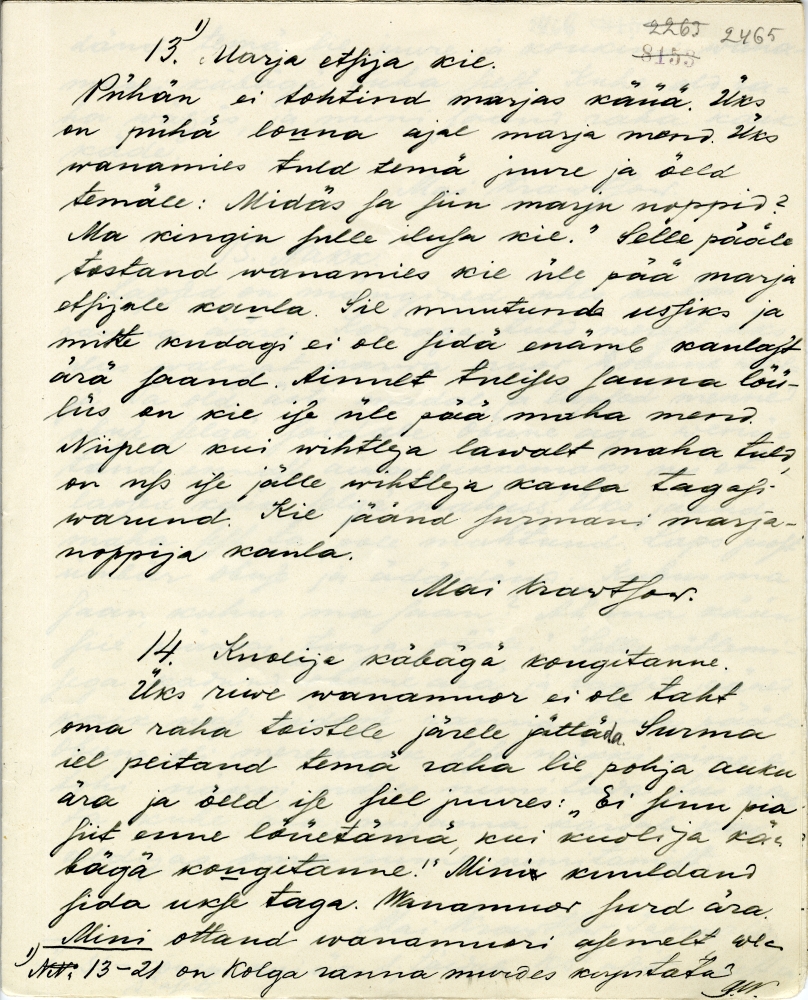 2265 2465
8153
13.¹) Marja etsija kie.
Pühän ei tohtind marjas käüä. Üks
on pühä lonna ajal marja mend. Üks
wanamies tuld temä juure ja öeld
temäle: Midäs sa siin marju noppid?
Ma kingin sulle ilusa kie." Selle pääle
tõstand wanamies kie üle pää marja
etsijale kaula. Sie muutund ussiks ja
mitte kudagi ei ole sidä enämb kaulast
ärä saand. Ainult tulises sauna löü-
lüs on kie ise üle pää maha mend.
Niipea kui wihtleja lawalt maha tuld,
on uss ise jälle wihtleja kaula tagasi
warund. Kie jäänd surmani marja-
noppija kaula.
Mai Krawtsow.
14. Kuolija käbägä kongitanne.
Üks riwe wanamuor ei ole taht
oma raha toistele järele jättäda. Surma
iel peitand temä raha lie pohja auku
ära ja öeld ise siel juures: „Ei sinu pea
siit enne löüetämä, kui kuolija kä-
bägä kongitanne!" Mini kuuldand
sida ukse taga. Wanamuor surd ära.
Mini ottand wanamuori asemelt we-
¹) 13-21 on Kolga ranna murdes kirjutatud